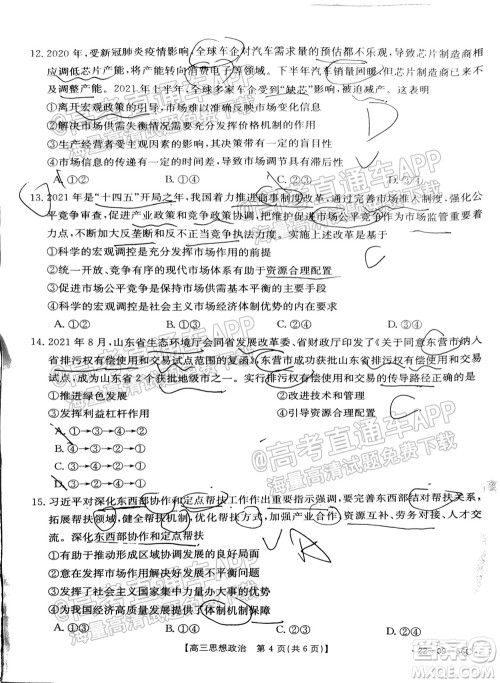 12. 2020年,受新冠肺炎疫情影响,全球车企对汽车需求量的预估都不乐观,导致芯片制造商相
应调低芯片产能,将产能转向消费电子等领域。下半年汽车销量回暖,但芯片制造商已来
不及调整产能。2021年上半年,全球多家车企受“缺芯”影响,被迫减产。这表明
①离开宏观政策的引导,市场难以准确反映市场变化信息
②解决市场供需失衡情况需要发挥价格机制的作用
③生产经营者受主客观因素的影响,其决策带有一定的盲目性
④市场调节从价格形成到产量调整有一定的时间差
A. ①②
B. ①③
C. ②④
D
13. 2021年是“十四五”开局之年,我国着力推进商事制度改革,通过完善市场准入制度,强化公
平竞争审查,促进产业政策和竞争政策协调,把维护市场公平竞争作为市场监管重要着
力点,不断加大反垄断和反不正当竞争执法力度。实施上述改革是基于
①科学的宏观调控是充分发挥市场作用的前提
②统一开放、竞争有序的现代市场体系有助于资源合理配置
③促进市场供需基本平衡是完善市场体系的目的
④科学的宏观调控是发挥社会主义市场经济体制优势的内在要求
A. ①②
B. ①③
C. ②④
C
14. 2021年8月,山东省生态环境厅会同省发展改革委、省财政厅印发《关于同意东营市纳入
省排污权有偿使用和交易试点范围的复函》,东营市成功获批山东省排污权有偿使用和交易
试点,成为山东省2个获批地级市之一。实行排污权有偿使用和交易的传导路径正确的是
①推进绿色发展
②改进技术和管理
③发挥利益杠杆作用
④引导资源合理配置
A. ①→③→④→②
B. ①→③→②→④
C. ③→②→④→①
15. 习近平对深化东西部协作和定点帮扶工作作出重要指示强调,要完善东西部结对帮扶关系,
拓展帮扶领域,健全帮扶机制,优化帮扶方式,加强产业合作、资源互补、劳务对接、人才交
流。深化东西部协作和定点帮扶
A
①有助于推动形成区域协调发展的良好局面
②意在解决市场发展不平衡问题
③意在发挥市场在资源配置中的作用
④为我国经济高质量发展提供了体制机制保障
A. ①④
B. ①②
【高三思想政治 第4页(共6页)】